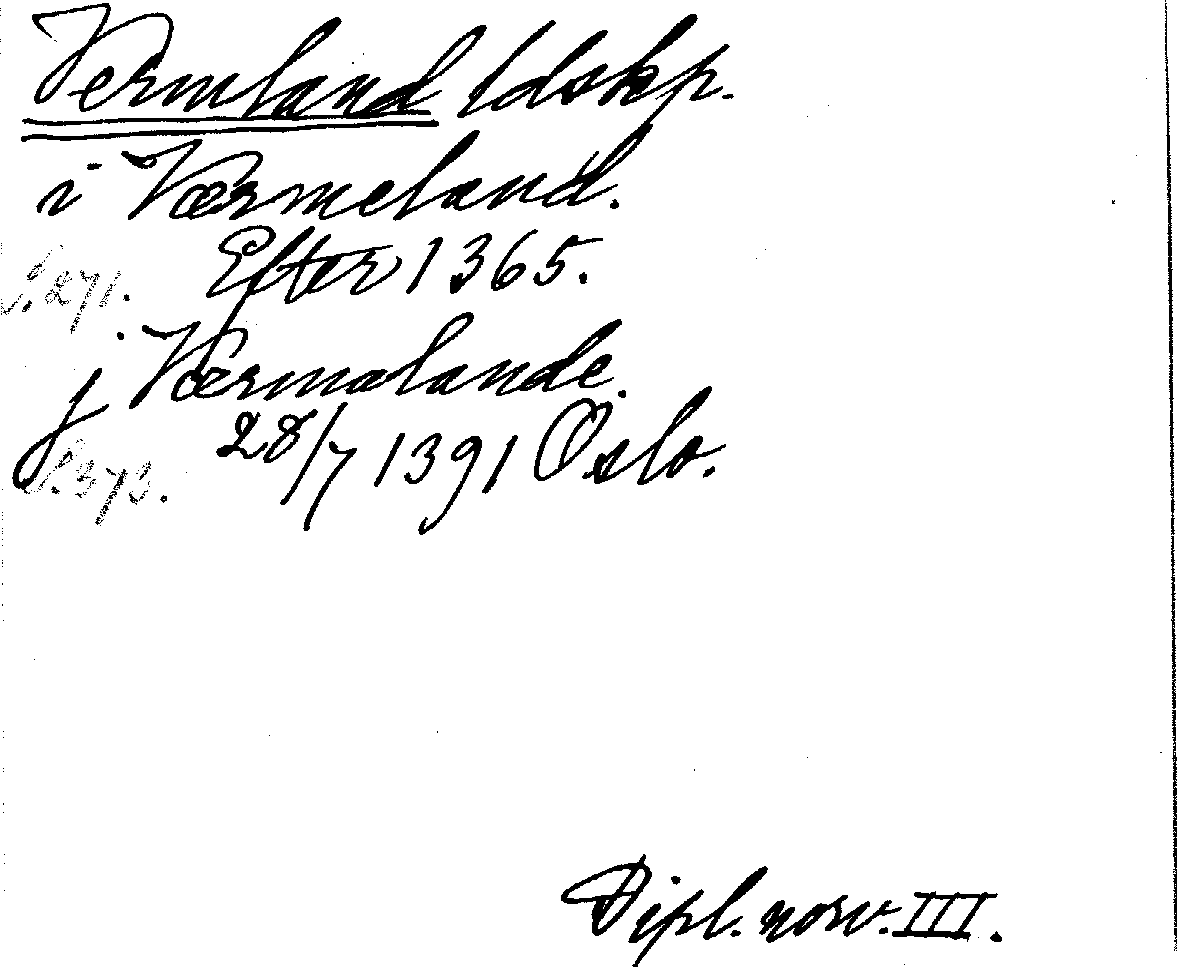 Vermland ldskp.
i Værmeland.
Efter 1365.
S. 271.
j Værmalande.
28/7 1391 Oslo.
S. 373.
Dipl. norv. III.